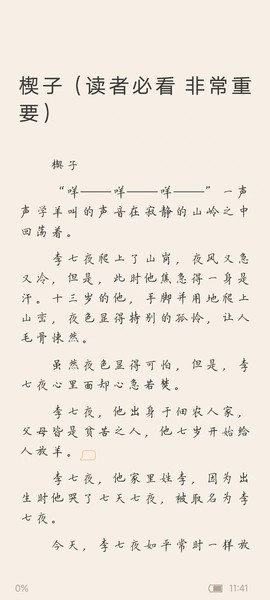 楔子（读者必看 非常重
要）
楔子
“咩——咩——咩——”一声
声学羊叫的声音在寂静的山岭之中
回荡着。
李七夜爬上了山岗，夜风又急
又冷，但是，此时他焦急得一身是
汗。十三岁的他，手脚并用地爬上
山峦，夜色显得特别的孤怜，让人
毛骨悚然。
虽然夜色显得可怕，但是，李
七夜心里面却心急若焚。
李七夜，他出身于佃农人家，
父母皆是贫苦之人，他七岁开始给
人放羊。
李七夜，他家里姓李，因为出
生时他哭了七天七夜，被取名为李
七夜。
今天，李七夜如平常时一样放
0%
11:41